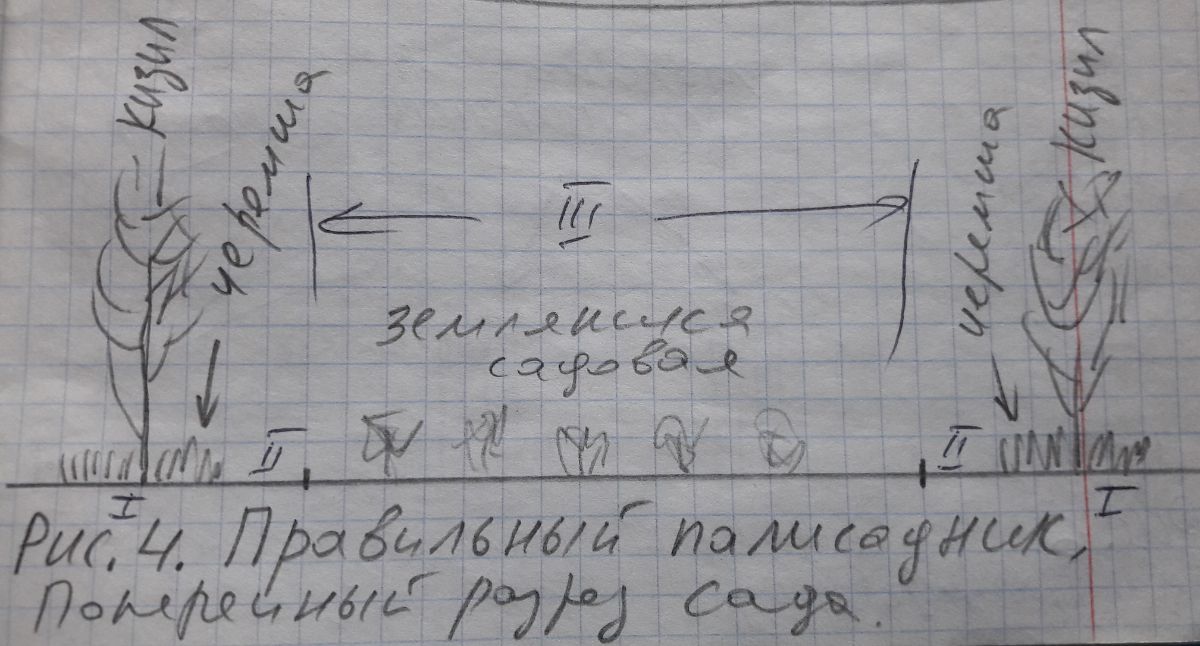 кизил
черемша
III
черемша
кизил
земляника
садовая
II
II
I
I
Рис. 4. Правильный палисадник.
Поперечный разрез сада.